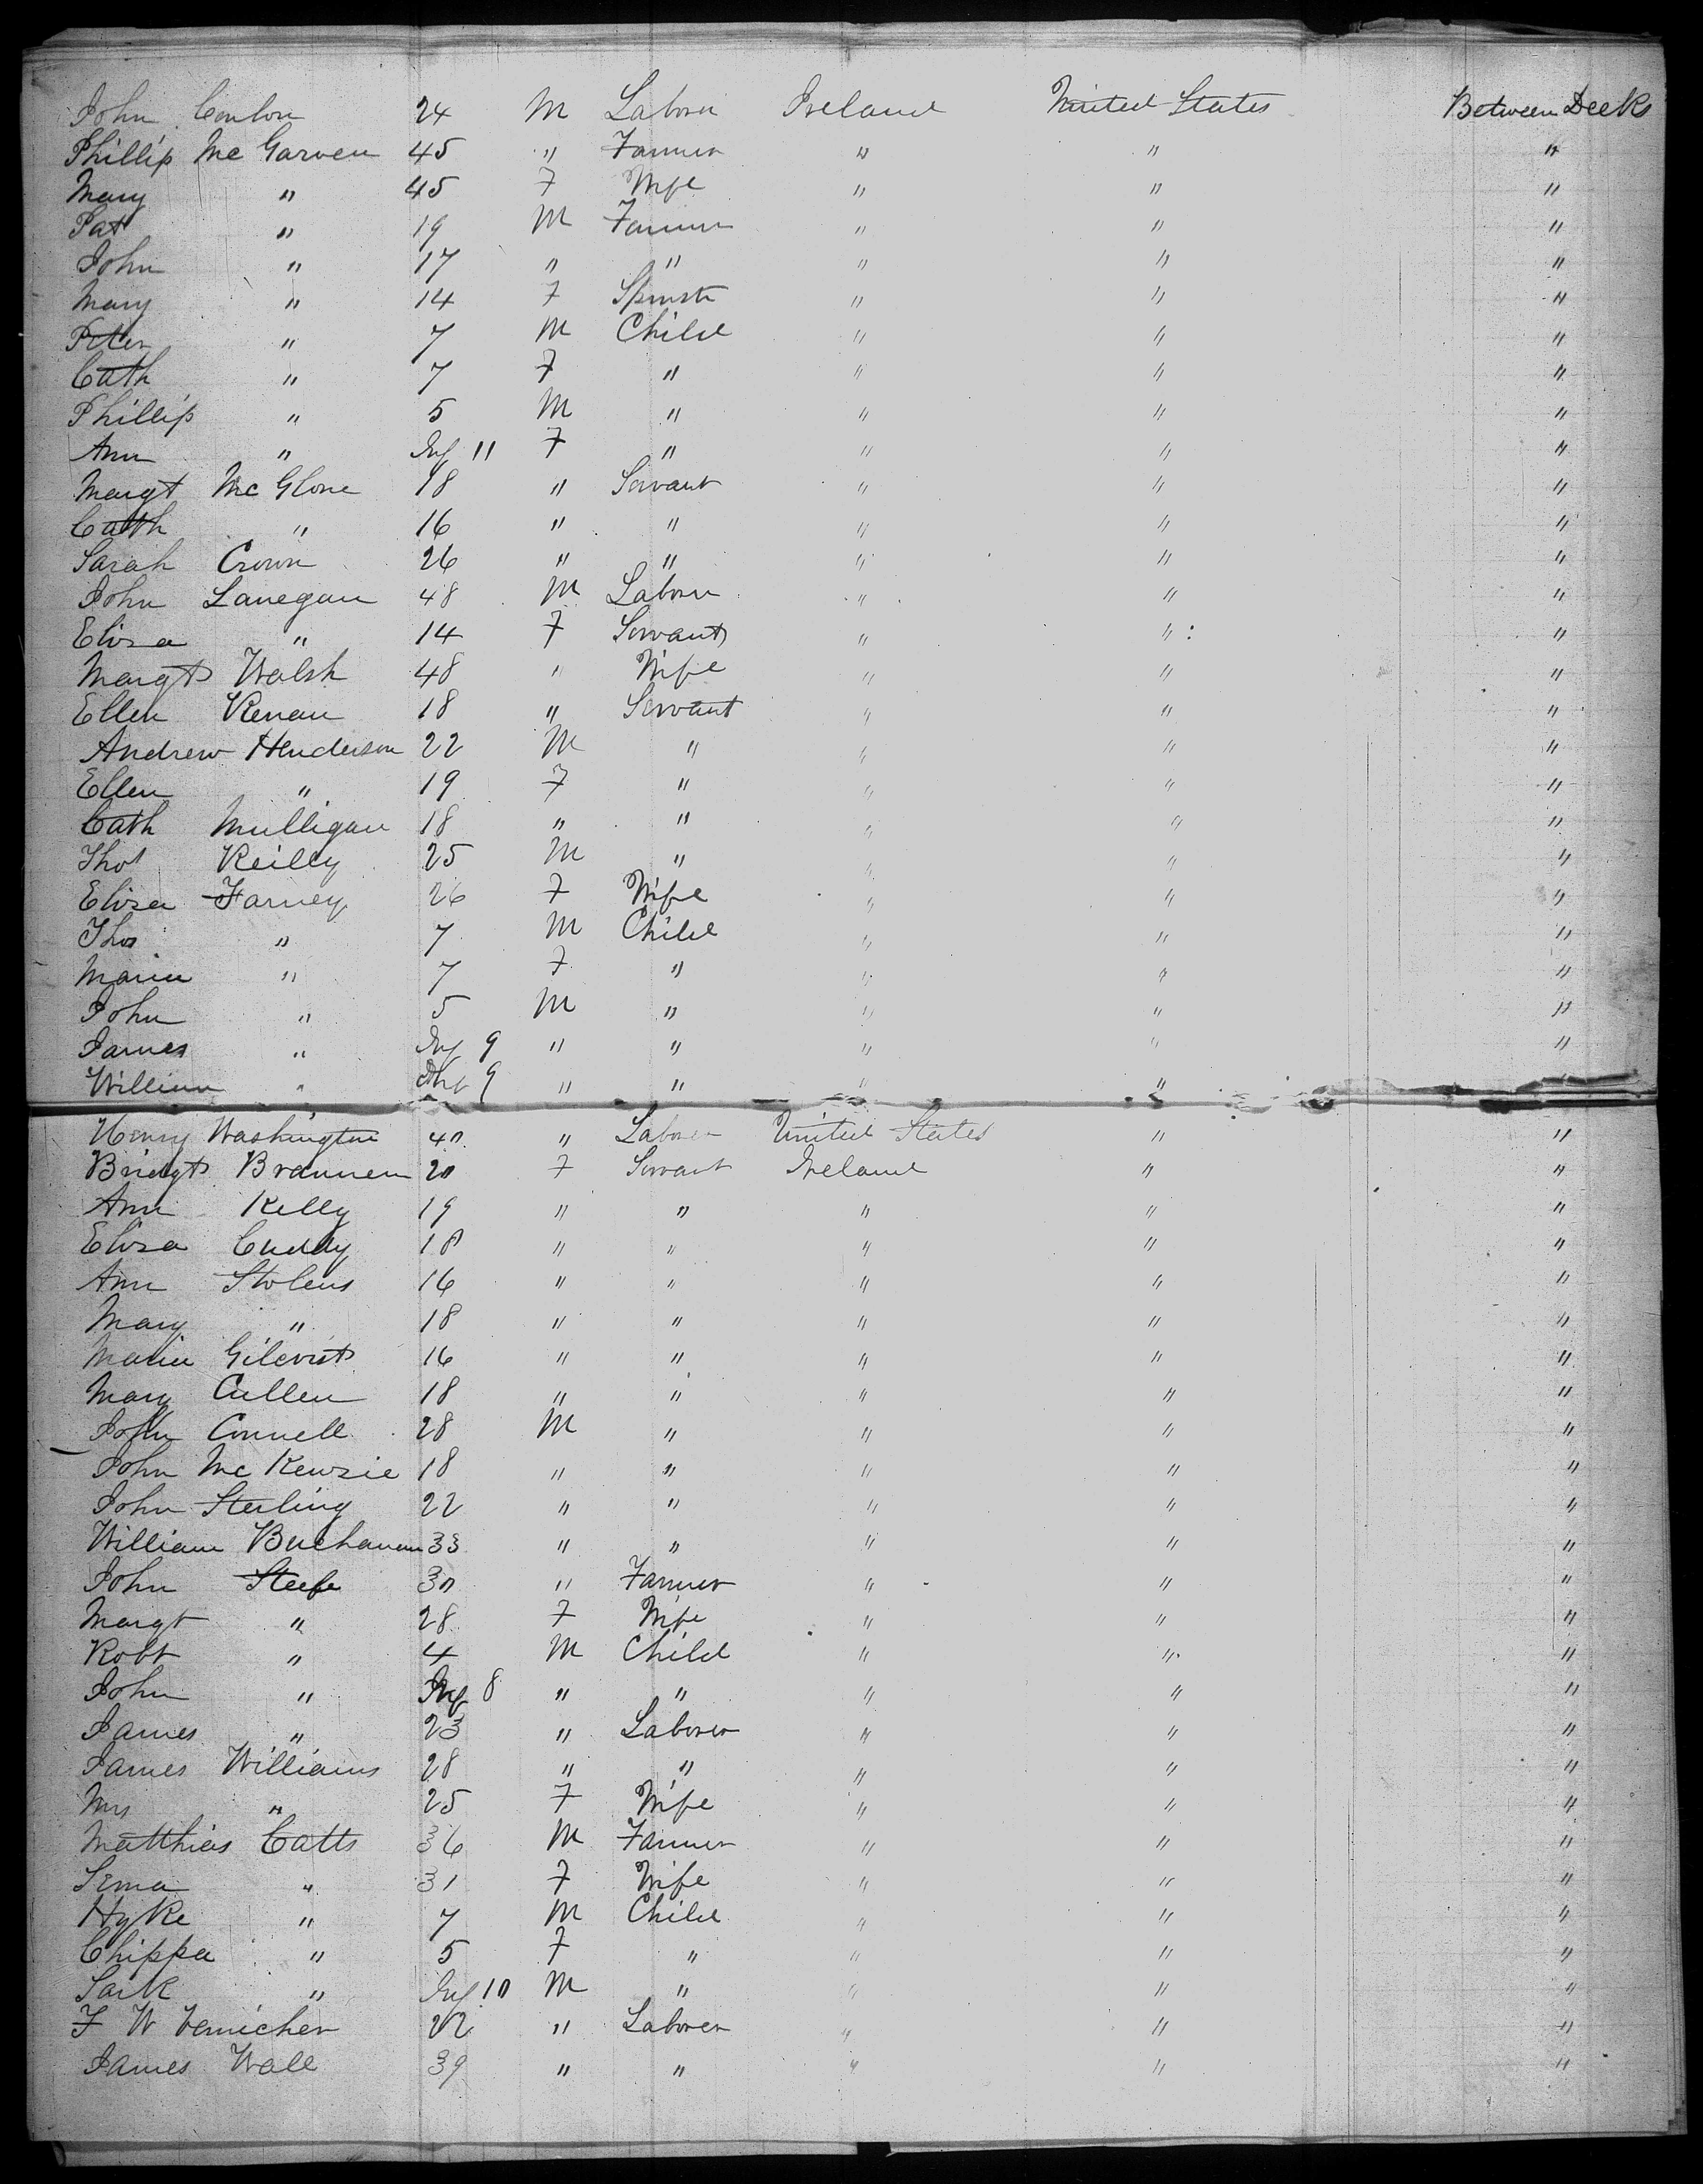 John Conlon 24 M Laborer Ireland United States Between Decks
Phillip Mc Garven 45 " Farmer " " "
Mary " 45 F Wife " " "
Pat " 19 M Farmer " " "
John " 17 " " " " "
Mary " 14 F Spinstr " " "
Peter " 7 M Child " " "
Cath " 7 F " " " "
Phillip " 5 M " " " "
Ann " Inf 11 F " " " "
Margt Mc Glone 18 " Servant " " "
Cath " 16 " " " " "
Sarah Crown 26 " " " " "
John Lanegan 48 M Laborer " " "
Eliza " 14 F Servant " " "
Margt Walsh 48 " Wife " " "
Ellen Kenan 18 " Servant " " "
Andrew Henderson 22 M " " " "
Ellen " 19 F " " " "
Cath Mulligan 18 " " " " "
Thos Reilly 25 M " " " "
Eliza Farney 26 F Wife " " "
Thos " 7 M Child " " "
Maria " 7 F " " " "
John " 5 M " " " "
James " Inf 9 " " " " "
William " Inf 9 " " " " "
Henry Washington 40 " Laborer United States " "
Bridgt Brannen 20 F Servant Ireland " "
Ann Kelly 19 " " " " "
Eliza Cuddy 18 " " " " "
Ann Stolens 16 " " " " "
Mary " 18 " " " " "
Maria Gilcrist 16 " " " " "
Mary Cullen 18 " " " " "
John Connell 28 M " " " "
John Mc Kenzie 18 " " " " "
John Sterling 22 " " " " "
William Buchanan 33 " " " " "
John Steele 30 " Farmer " " "
Margt " 28 F Wife " " "
Robt " 4 M Child " " "
John " Inf 8 " " " " "
James " 23 " Laborer " " "
James Williams 28 " " " " "
Mrs " 25 F Wife " " "
Matthias Catts 36 M Farmer " " "
Sema " 31 F Wife " " "
Hyke " 7 M Child " " "
Chippa " 5 F " " " "
Sark " Inf 10 M " " " "
F W 22 " Laborer " " "
James Wall 39 " " " " "